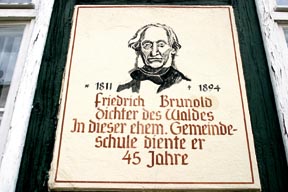 * 1811 † 1894
Friedrich Brunold
Dichter des Waldes
In dieser ehem. Gemeinde-
schule diente er
45 Jahre